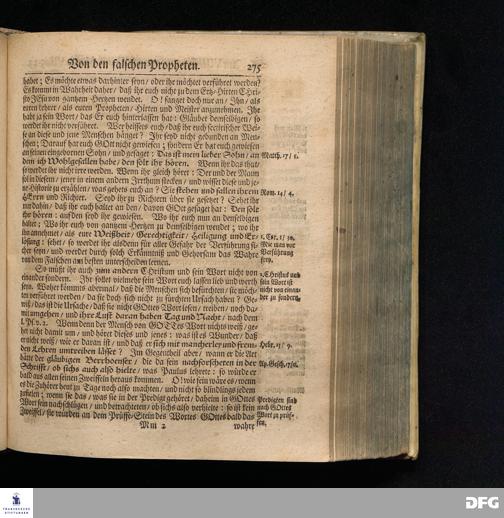 Von den falschen Propheten. 275
habet; Es möchte etwas darhinter seyn / oder ihr möchtet verführet werden?
Es kommt in Wahrheit daher / daß ihr euch nicht zu dem Ertz-Hirten Chri-
sto JEsu von gantzem Hertzen wendet. O! fanget doch nur an / Ihn / als
euren Lehrer / als euren Propheten / Hirten und Meister anzunehmen. Ihr
habt ja sein Wort / das Er euch hinterlassen hat: Gläubet demselbigen / so
werdet ihr nicht verführet. Wer heisses euch / daß ihr euch sectirischer Wei-
se an diese und jene Menschen hänget? Ihr seyd nicht gebunden an Men-
schen; Darauf hat euch GOtt nicht gewiesen; sondern Er hat euch gewiesen
an seinen eingebornen Sohn / und gesaget: Das ist mein lieber Sohn / an
dem ich Wohlgefallen habe / den solt ihr hören. Wenn ihr das thut /
so werdet ihr nicht irre werden. Wenn ihr gleich höret: Der und der Mann
sol in diesem / jener in einem andern Irrthum stecken / und wisset diese und je-
ne Historie zu erzählen / was gehets euch an? Sie stehen und fallen ihrem
HErrn und Richter. Seyd ihr zu Richtern über sie gesetzet? Sehet ihr
nur dahin / daß ihr euch haltet an den / davon GOtt gesaget hat: Den solt
ihr hören: auf den seyd ihr gewiesen. Wo ihr euch nun an denselbigen
haltet; Wo ihr euch von gantzem Hertzen zu demselben wendet; wo ihr
ihn annehmet / als eure Weißheit / Gerechtigkeit / Heiligung und Er-
lösung: sehet / so werdet ihr alsdenn für aller Gefahr der Verführung si-
cher seyn / und werdet durch solch Erkänntniß und Gehorsam das Wahre
von dem Falschen am besten unterscheiden lernen.
So müßt ihr auch zum andern Christum und sein Wort nicht von
einander sondern. Ihr sollet vielmehr sein Wort euch lassen lieb und werth
seyn. Woher kömmts abermal / daß die Menschen sich befürchten / sie möch-
ten verführet werden / da sie doch sich nicht zu fürchten Ursach haben? Ge-
wiß / das ist die Ursache / daß sie nicht GOttes Wort lesen / treiben / noch da-
mit umgehen / und ihre Lust daran haben Tag und Nacht / nach dem
1. Ps. v. 2. Wenn denn der Mensch von GOTTes Wort nichts weiß / ge-
het nicht damit um / und höret dieses und jenes: was ists Wunder / daß
er nicht weiß / wie er daran ist / und daß er sich mit mancherley und frem-
den Lehren umtreiben lässet? Im Gegentheil aber / wann er die Art
hätte der gläubigen Berrhoenser / die da sein nachforscheten in der
Schrifft / ob sichs auch also hielte / was Paulus lehrete: so würde er
bald aus allen seinen Zweiffeln heraus kommen. O! wie fein wäre es / wenn
es die Zuhörer heut zu Tage noch also machten / und nicht so blindlings jedem
zufielen; wenn sie das / was sie in der Predigt gehöret / daheim in GOttes
Wort fein nachschlügen / und betrachteten / ob sichs also verhielte: so ist kein
Zweiffel / sie würden an dem Prüffe-Stein des Wortes GOttes bald das
Mm 2 wahre
Matth. 17 / 5.
Rom. 14 / 4.
1. Cor. 1 / 30.
Wie man vor
Verführung
frey.
2. Christus und
sein Wort ist
nicht von einan-
der zu sondern.
Hebr. 13 / 9.
Ap. Gesch. 17 / 11.
Predigten sind
nach GOttes
Wort zu prüf-
fen.
FRANCKESCHE
STIFTUNGEN
DFG